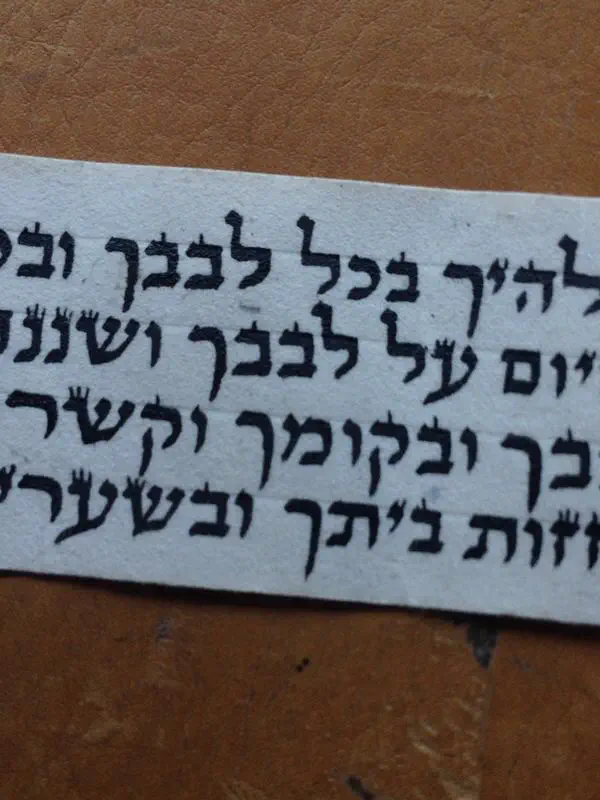 להיך בכל לבבך ובכ
יום על לבבך ושננת
בבך ובקומך וקשר
זזות ביתך ובשערי